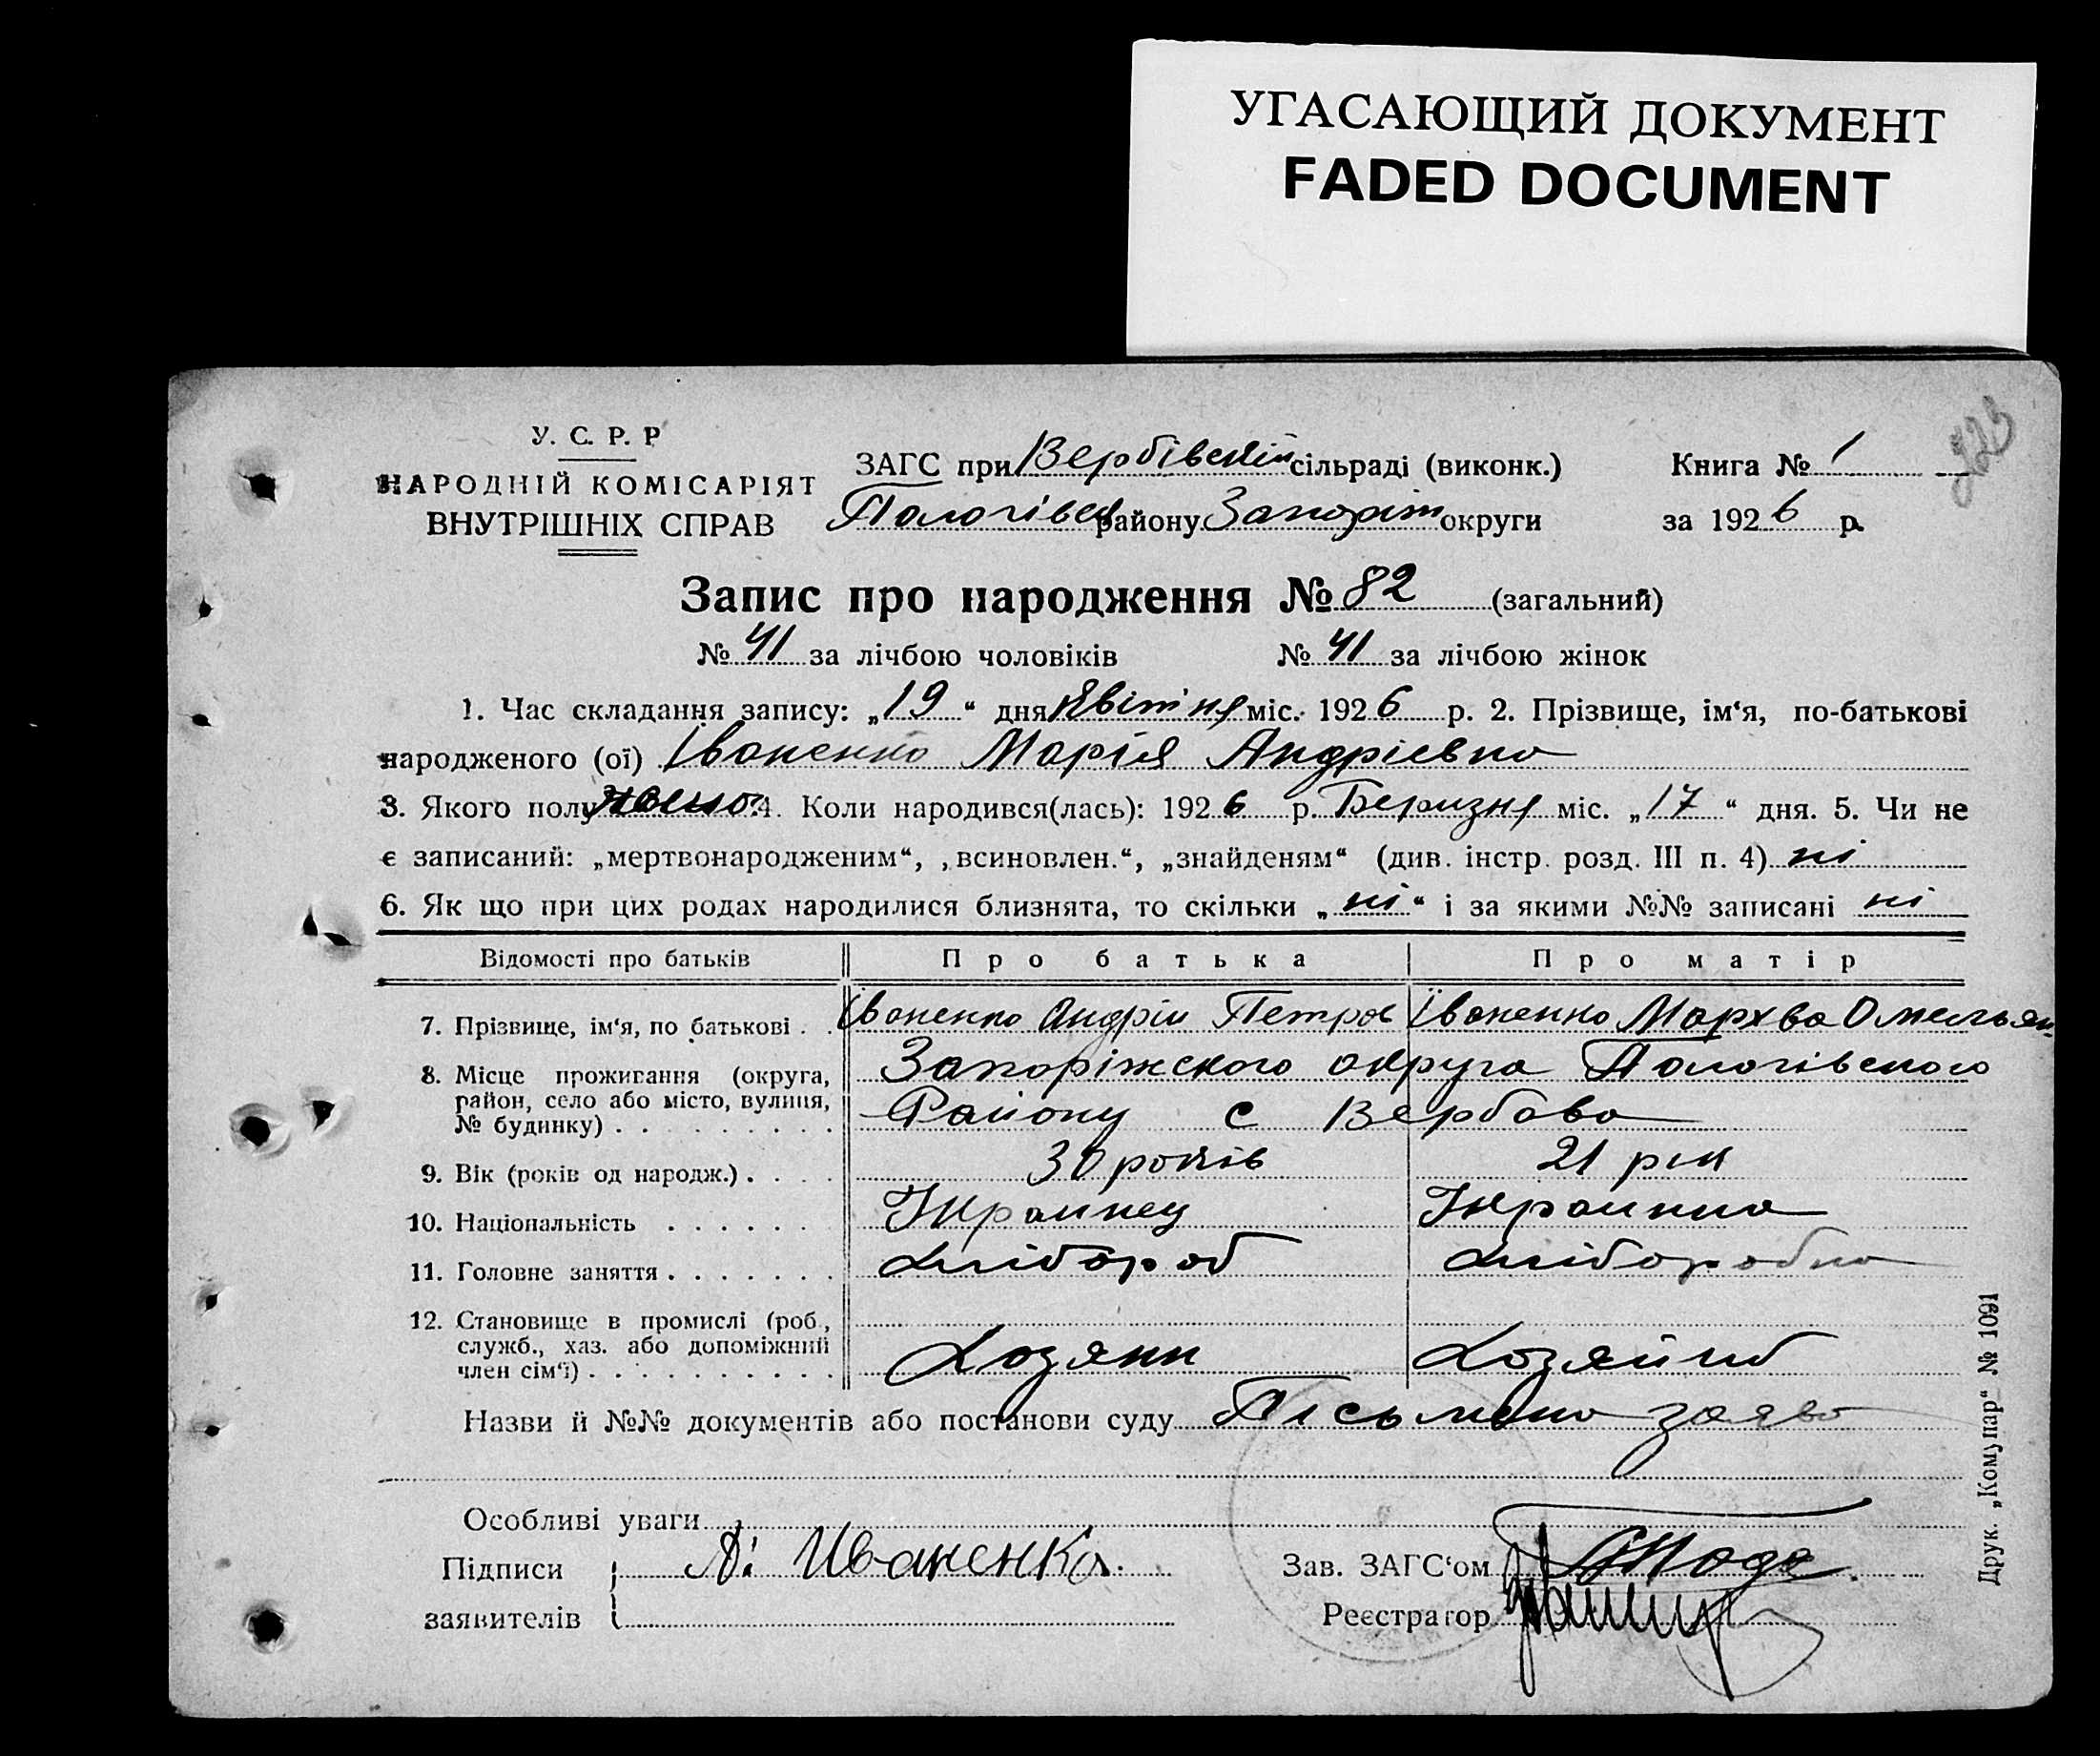 УГАСАЮЩИЙ ДОКУМЕНТ
FADED DOCUMENT
У. С. Р. Р
НАРОДНІЙ КОМІСАРІЯТ
ВНУТРІШНІХ СПРАВ
ЗАГС при Вербівській сільраді (виконк.)
Пологівск району Запоріж округи
Книга № 1
за 1926 р.
223
Запис про народження № 82 (загальний)
№ 41 за лічбою чоловіків № 41 за лічбою жінок
1. Час складання запису: „19“ дня Квітня міс. 1926 р. 2. Прізвище, ім‘я, по-батькові
народженого (ої) Іваненко Марія Андріевна
3. Якого полу 4. Коли народився(лась): 1926 р. Беризня міс. „17“ дня. 5. Чи не
є записаний: „мертвонародженим“, „всиновлен.“, „знайденям“ (див. інстр. розд. III п. 4) ні
6. Як що при цих родах народилися близнята, то скільки „ні“ і за якими №№ записані ні
Відомості про батьків Про батька Про матір
7. Прізвище, ім‘я, по батькові . . Іваненко Андрій Петров Іваненко Мархва Омельян
8. Місце проживання (округа, район, село або місто, вулиця, № будинку) . . . . . . . . . Запоріжского округа Пологівского
Району с Вербова
9. Вік (років од народж.) . . . . 30 років 21 рік
10. Національність . . . . . . Украинец Украинка
11. Головне заняття . . . . . . . Хлібороб Хлібаробка
12. Становище в промислі (роб., служб., хаз. або допоміжний член сім‘ї) . . . . . . . . . . Хозяин Хозяйка
Назви й №№ документів або постанови суду Пісьмена заява
Особливі уваги
Підписи А. Иваненко.
заявителів
Зав. ЗАГС‘ом
Реєстратор
Друк. „Комунар“ № 1091